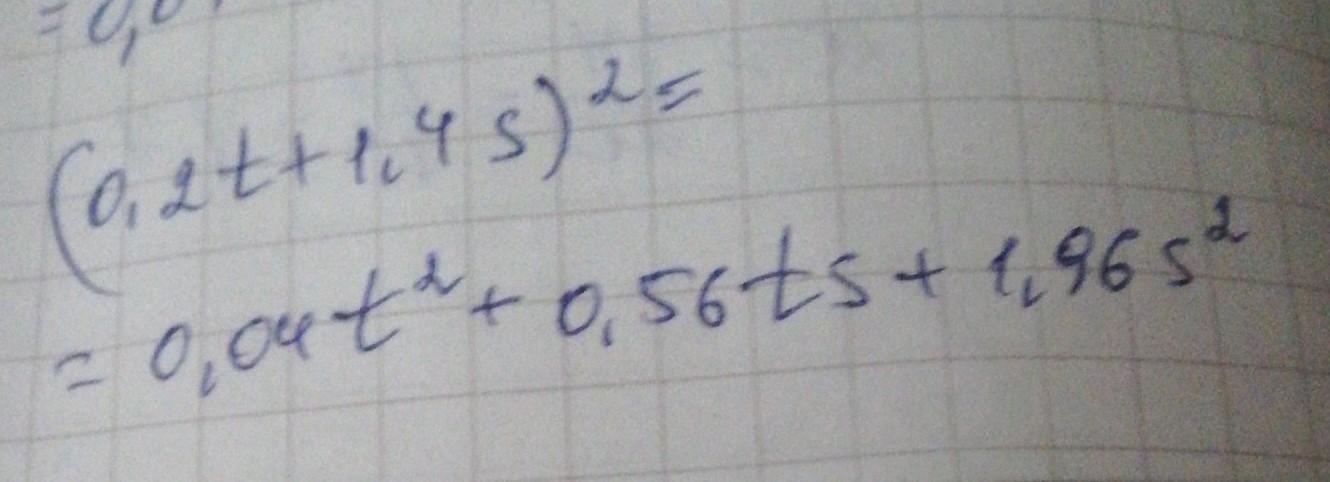 (0,2t+1,4s)²=
=0,04t²+0,56ts+1,96s²